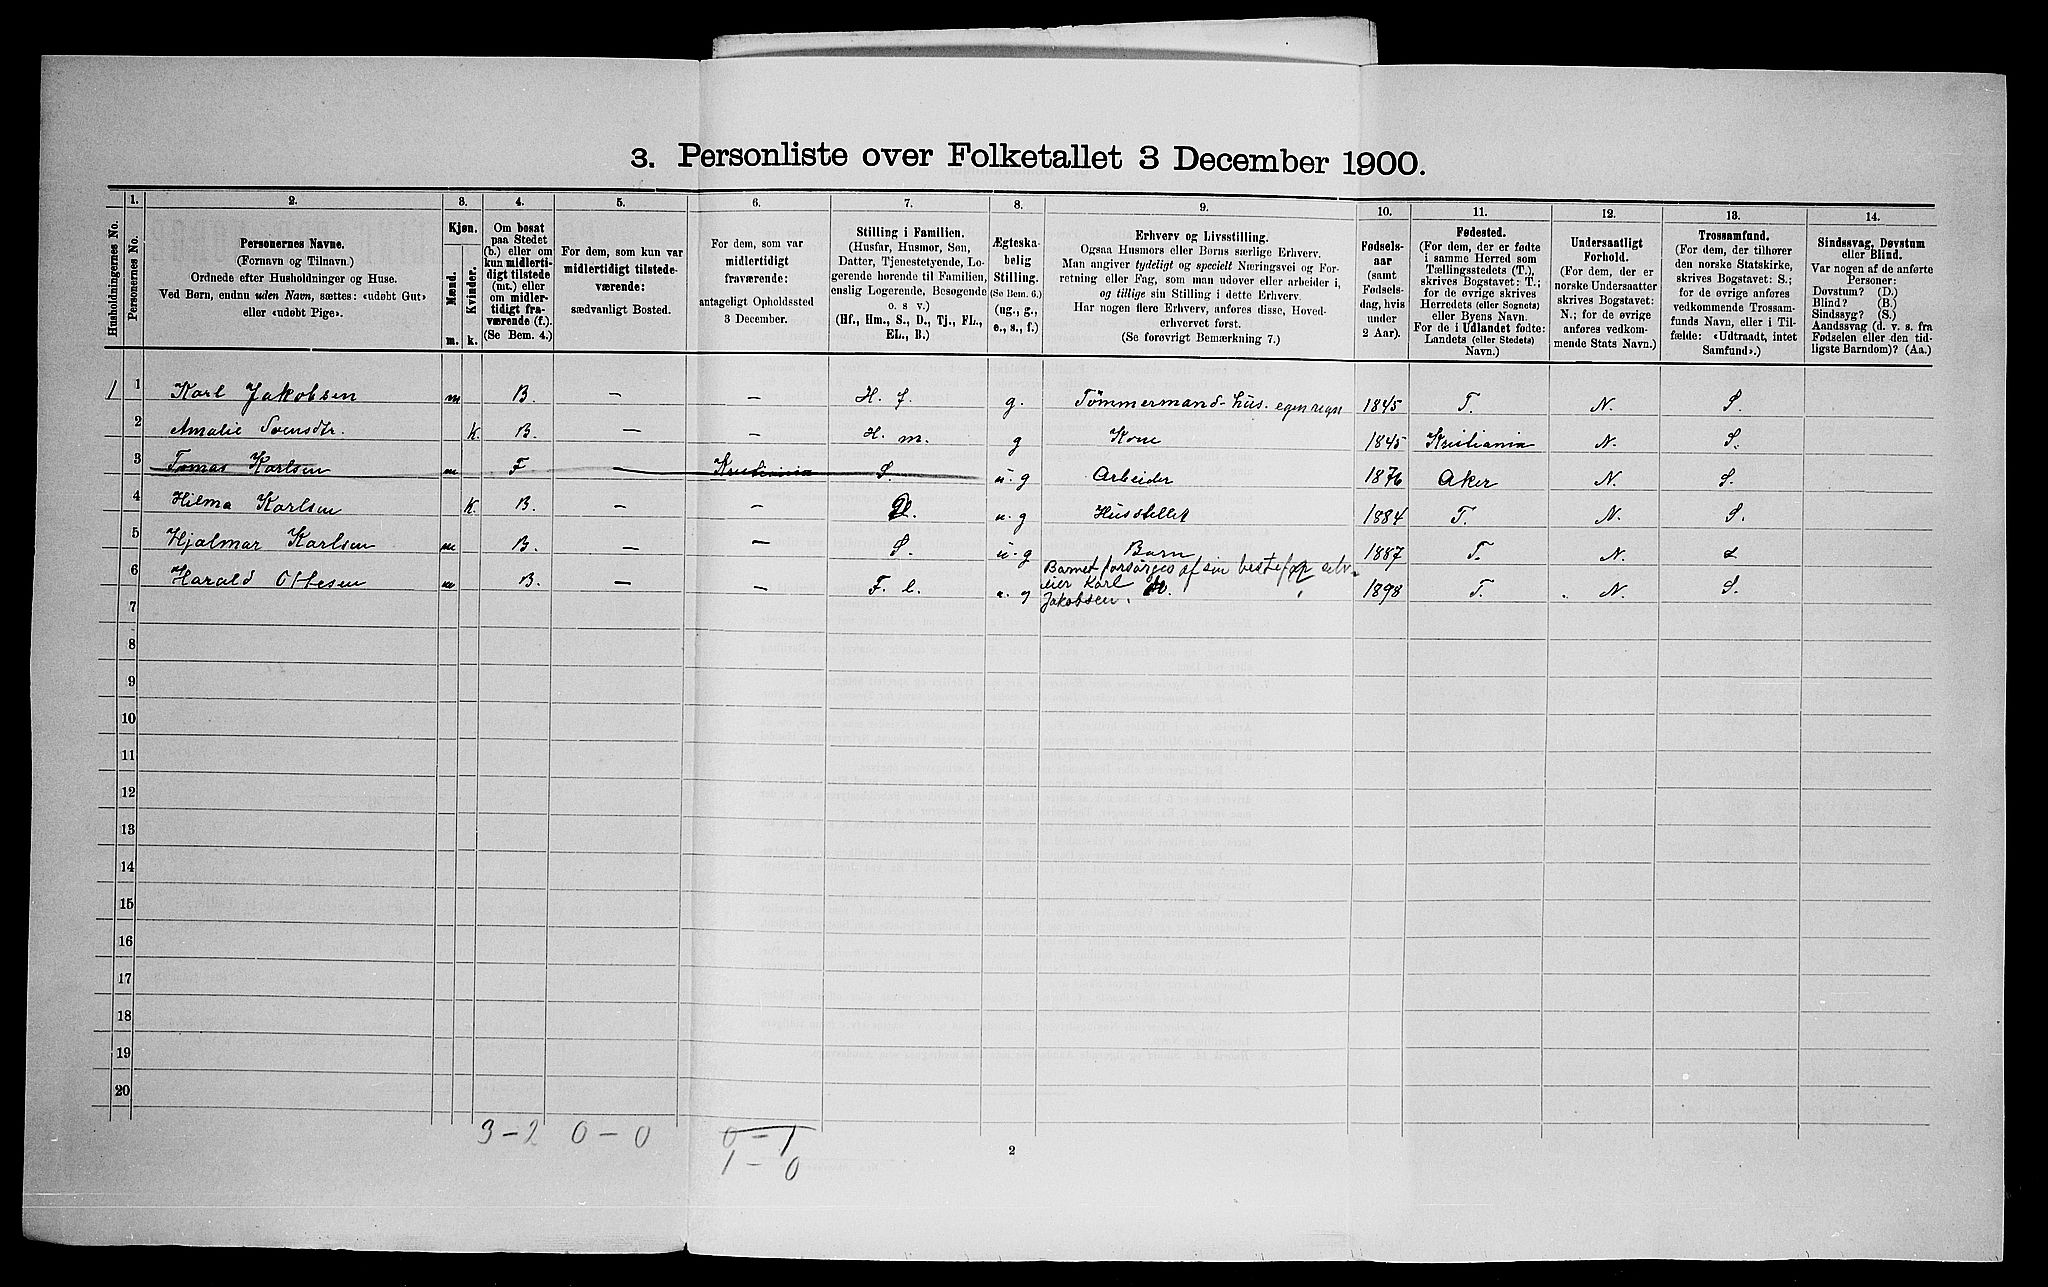 3. Personliste over Folketallet 3 December 1900.
Husholdningernes No.
1.
Personernes No.
2.
Personernes Navne.
(Fornavn og Tilnavn.)
Ordnede efter Husholdninger og Huse.
Ved Børn, endnu uden Navn, sættes: «udøbt Gut»
eller «udøbt Pige».
3.
Kjøn.
Mænd.
Kvinder.
m.
k.
4.
Om bosat
paa Stedet
(b.) eller om
kun midlerti-
digt tilstede
(mt.) eller
om midler-
tidigt fra-
værende (f.).
(Se Bem. 4.)
5.
For dem, som kun var
midlertidigt tilstede-
værende:
sædvanligt Bosted.
6.
For dem, som var
midlertidigt
fraværende:
antageligt Opholdssted
3 December.
7.
Stilling i Familien.
(Husfar, Husmor, Søn,
Datter, Tjenestetyende, Lo-
gerende hørende til Familien,
enslig Logerende, Besøgende
o. s v.)
(Hf., Hm., S., D., Tj., FL.,
EL., B.)
8.
Ægteska-
belig
Stilling.
(Se Bem. 6.)
(ug., g.,
e., s., f.)
9.
Erhverv og Livsstilling.
Ogsaa Husmors eller Børns særlige Erhverv.
Man angiver tydeligt og specielt Næringsvei og For-
retning eller Fag, som man udøver eller arbeider i,
og tillige sin Stilling i dette Erhverv.
Har nogen flere Erhverv, anføres disse, Hoved-
erhvervet først.
(Se forøvrigt Bemærkning 7.)
10.
Fødsels-
aar
(samt
Fødsels-
dag, hvis
under
2 Aar).
11.
Fødested.
(For dem, der er fødte
i samme Herred som
Tællingsstedets (T.),
skrives Bogstavet: T.;
for de øvrige skrives
Herredets (eller Sognets)
eller Byens Navn.
For de i Udlandet fødte:
Landets (eller Stedets)
Navn.)
12.
Undersaatligt
Forhold.
(For dem, der er
norske Undersaatter
skrives Bogstavet:
N.; for de øvrige
anføres vedkom-
mende Stats Navn.)
13.
Trossamfund.
(For dem, der tilhører
den norske Statskirke,
skrives Bogstavet: S.;
for de øvrige anføres
vedkommende Trossam-
funds Navn, eller i Til-
fælde: «Udtraadt, intet
Samfund».)
14.
Sindssvag, Døvstum
eller Blind.
Var nogen af de anførte
Personer:
Døvstum? (D.)
Blind? (B.)
Sindssyg? (S.)
Aandssvag (d. v. s. fra
Fødselen eller den tid-
ligste Barndom)? (Aa.)
1 1 Karl Jakobsen m B. – – H. f. g. Tømmermand- hus. egen regn 1845 T. N. S.
2 Amalie Svensdtr. K. B. – – H. m. g Kone 1845 Kristiania N. S.
3 Tomas Karlsen m F – Kristiania S. u. g Arbeider 1876 Aker N. S.
4 Hilma Karlsen K. B. – – D. u. g Husstellet 1884 T. N. S.
5 Hjalmar Karlsen m B. – – S. u. g Barn 1887 T. N. S
6 Harald Ottesen m B. – – F. l. u. g Barnet forsørges af sin bestefar selv-
eier Karl
Jakobsen. 1898 T. N. S.
7
8
9
10
11
12
13
14
15
16
17
18
19
20
3 – 2 0 – 0 0 – 1
1 – 0
2